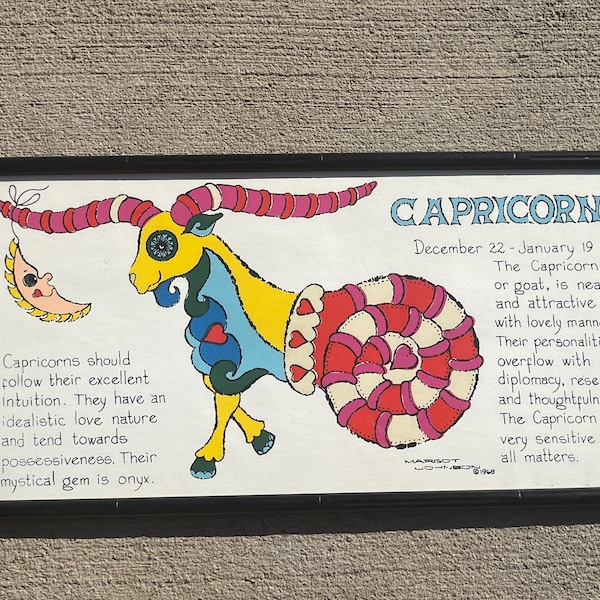 CAPRICORN
December 22 - January 19
The Capricorn
or goat, is
and attractive
with lovely
Their
overflow with
diplomacy,
and
The Capricorn
very sensitive
all matters.
Capricorns should
follow their excellent
intuition. They have an
idealistic love nature
and tend towards
possessiveness. Their
mystical gem is onyx.
MARGOT
JOHNSON ©1968